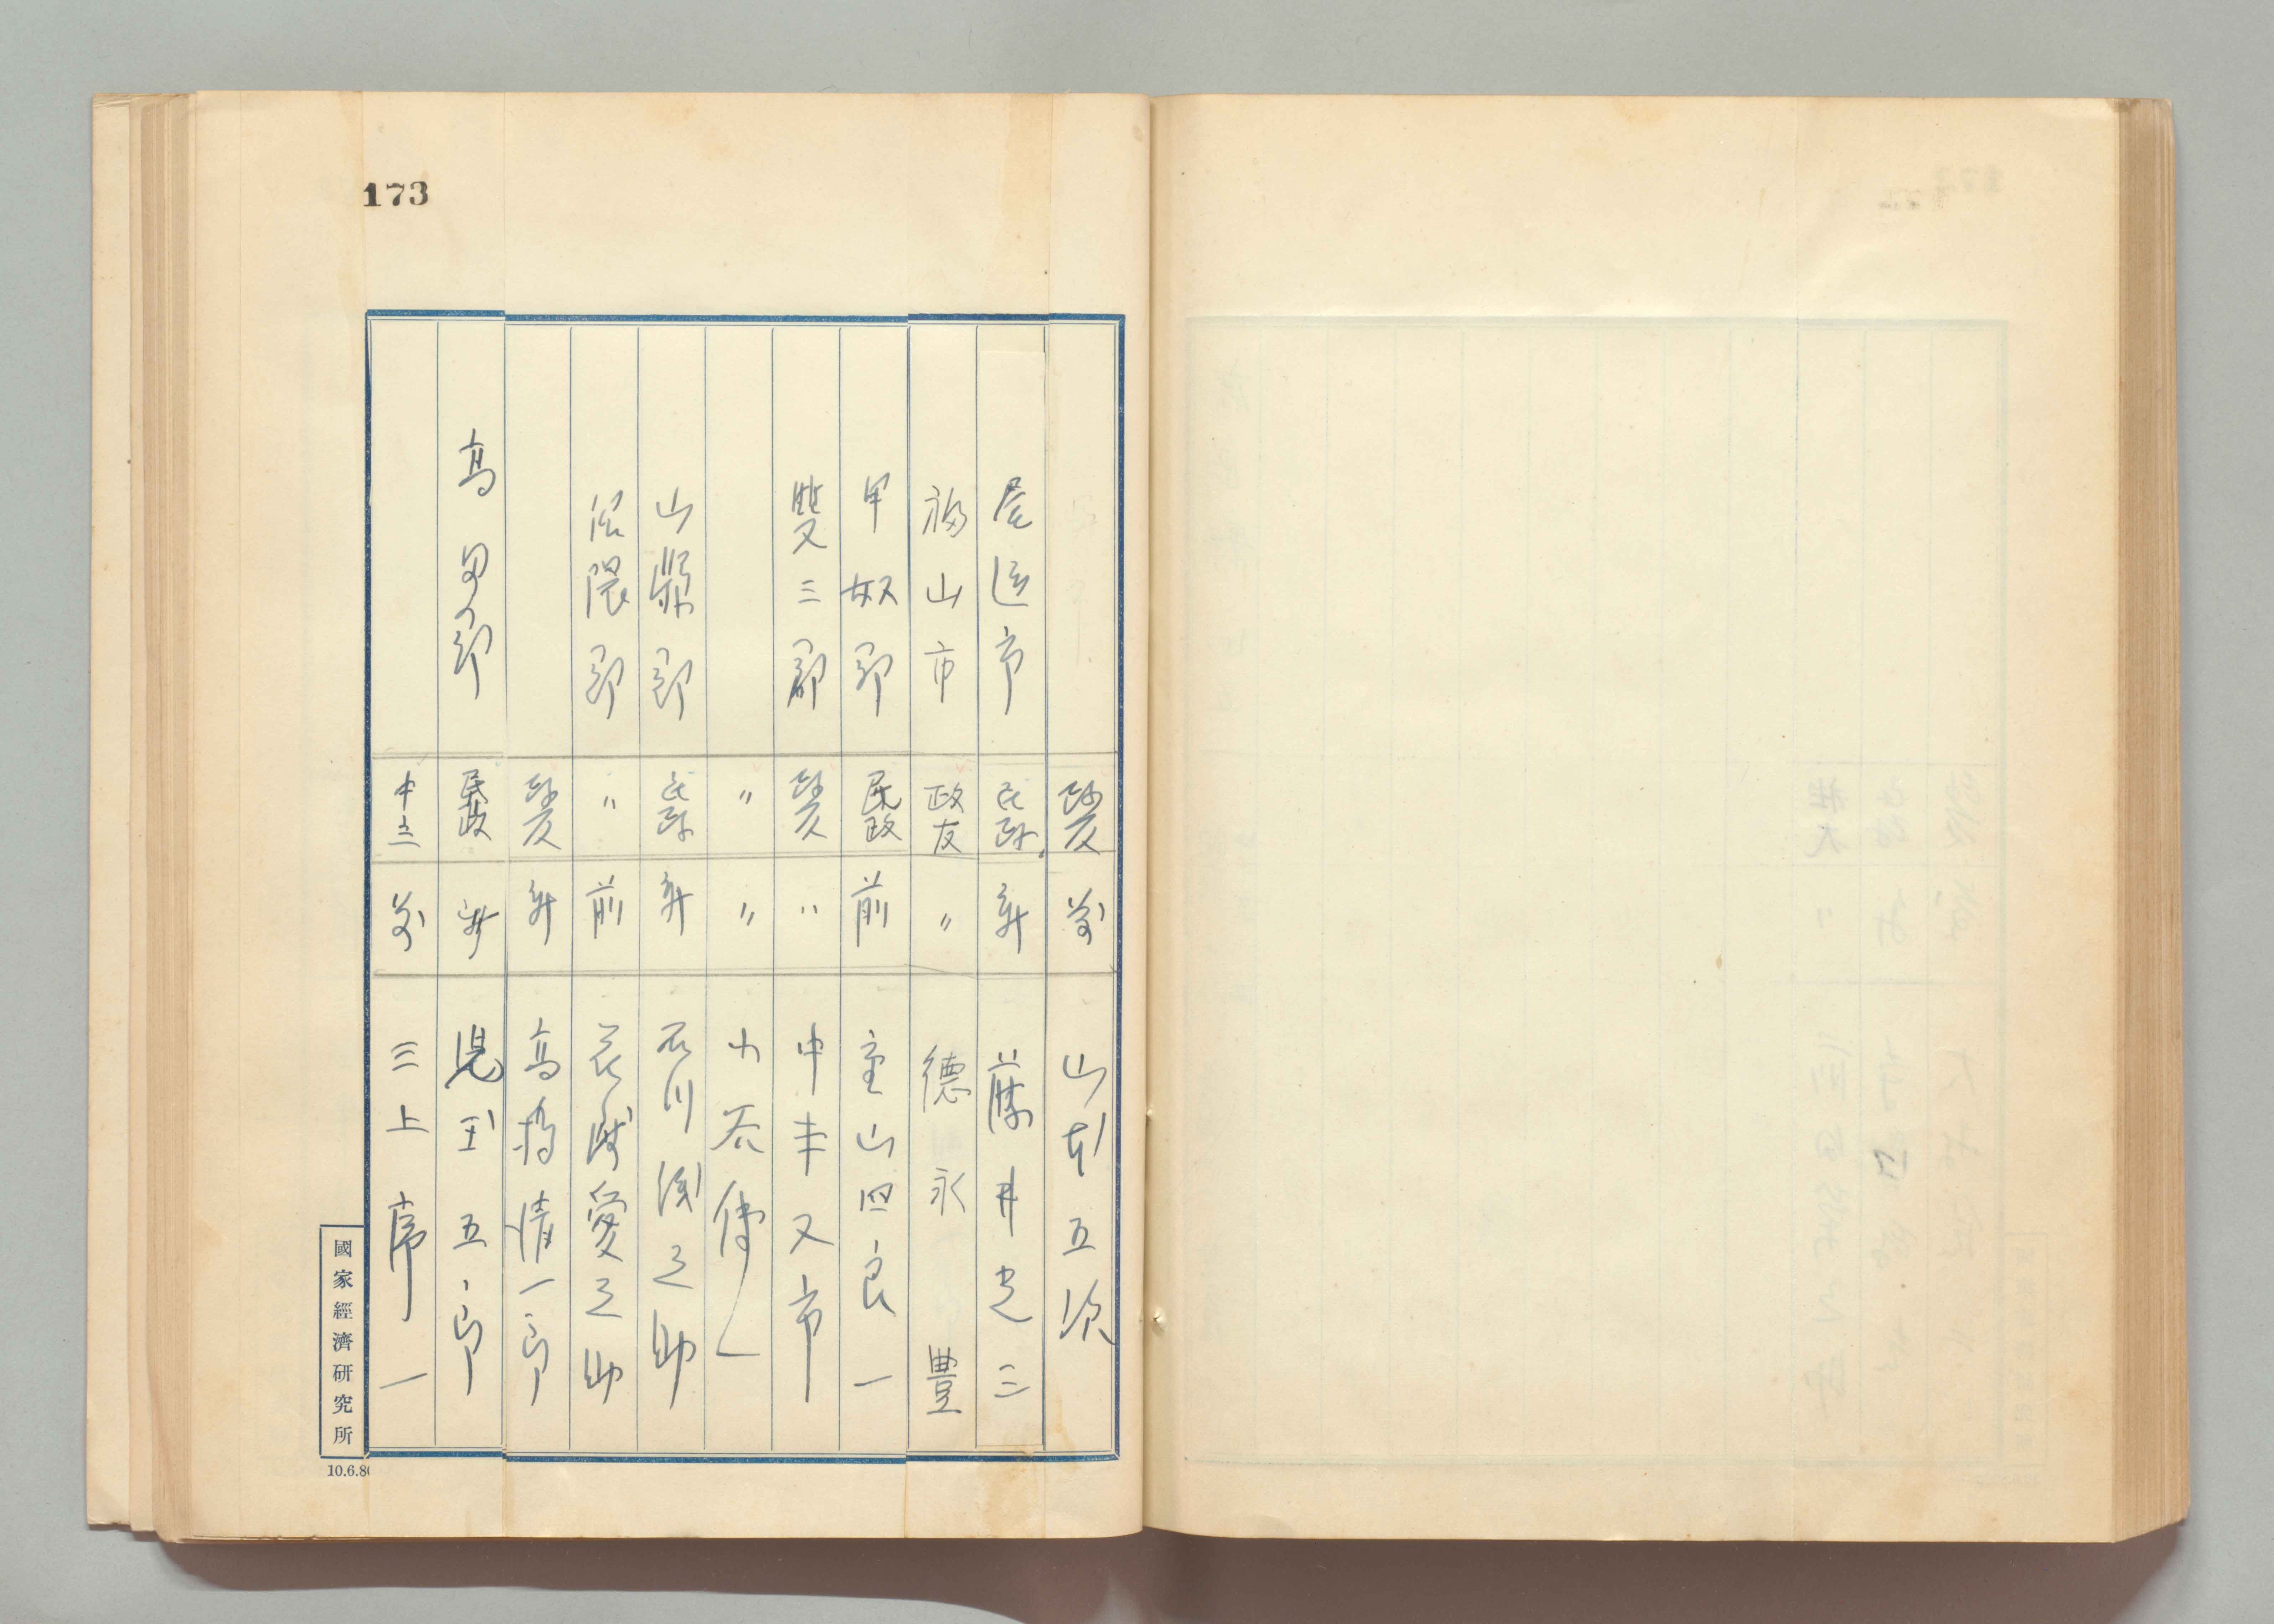 173
政友 前 山本五次
尾道市 民政 新 藤井老三
福山市 政友 〃 徳永豊
甲奴郡 民政 前 重山四良一
雙三郡 政友 〃 中丰又市
〃 〃 小谷傳一
山縣郡 民政 新 石川浅之助
佐隈郡 〃 前 花咲愛之助
政友 新 高橋清一郎
高田郡 民政 新 児玉五郎
中立 前 三上席一
國家經濟研究所
10.6.80